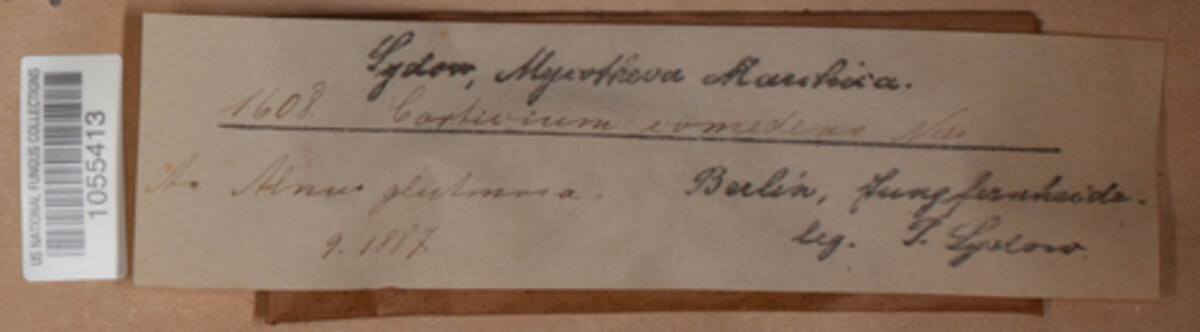 US NATIONAL FUNGUS COLLECTIONS
1055413
Sydow, Mycotheca Marchica.
1608. Corticium comedens Nees
An Alnus glutinosa.
9. 1887
Berlin, Jungfernheide.
leg. P. Sydow.